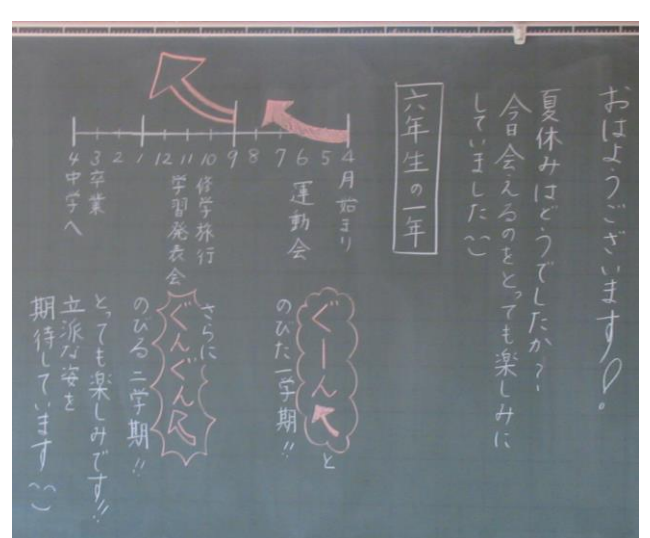 おはようございます!
夏休みはどうでしたか?
今日会えるのをとっても楽しみに
していました
六年生の一年
4 3 2 1 12 11 10 9 8 7 6 5 4
月始まり
運動会
修学旅行
学習発表会
卒業
中学へ
ぐーんと
のびた一学期!!
さらにぐんぐん
のびる二学期!!
とっても楽しみです!!
立派な姿を
期待しています